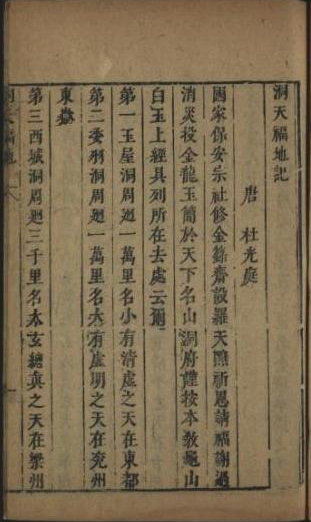 洞天福地記
唐 杜光庭
國家保安宗社修金籙齋設羅天醮祈恩請福謝過
消災投金龍玉簡於天下名山洞府謹按本教龜山
白玉上經具列所在去處云爾
第一王屋洞周廻一萬里名小有清虛之天在東都
第二委羽洞周廻一萬里名大有虛明之天在兖州
東嶽
第三西城洞周廻三千里名太玄總真之天在梁州
洞天福地